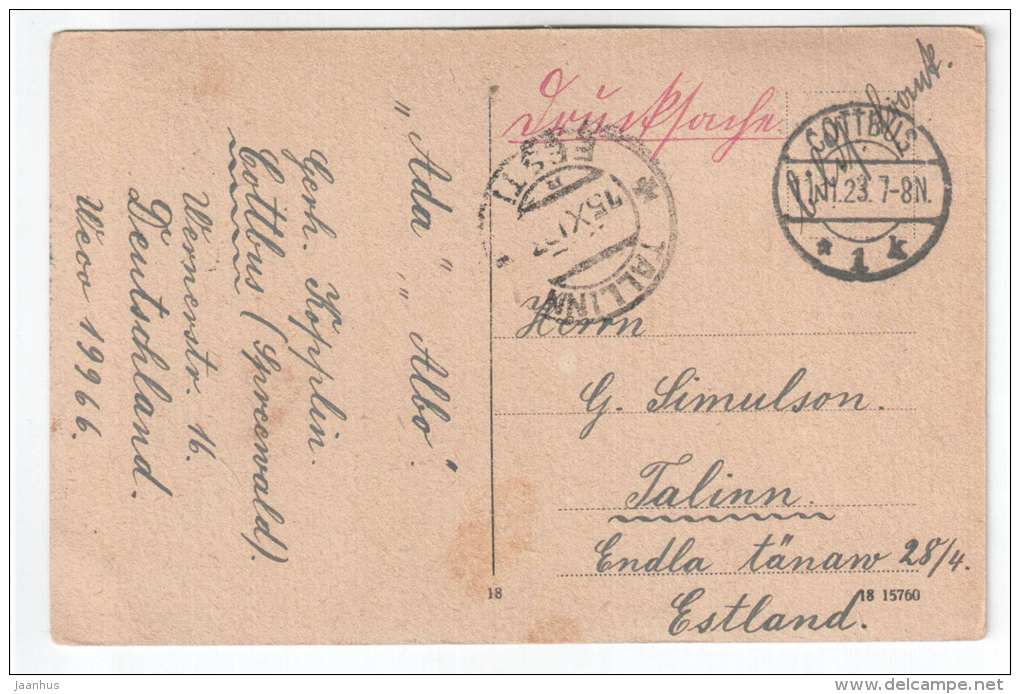 „Ada „ „ Albo".
Gerh. Kopplin.
Cottbus (Spreewald).
Wernerstr. 16.
Deutschland.
Wevo 19966.
Drucksache
frank.
COTTBUS
11.11.23. 7-8N.
* 1 k
EESTI
TALLINN
Herrn
G. Simulson.
Talinn.
Endla tänaw 28/4.
Estland.
18
18 15760
jaanhus
www.delcampe.net